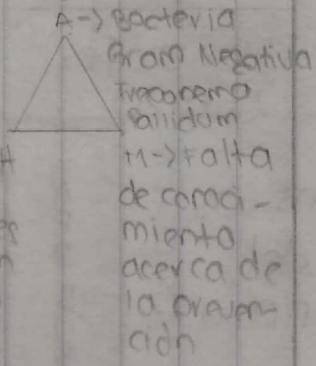 A -> Bacteria
Gram Negativa
Treponema
Pallidum
H -> Falta
de conoci-
miento
acerca de
la preven-
ción
H
es
n